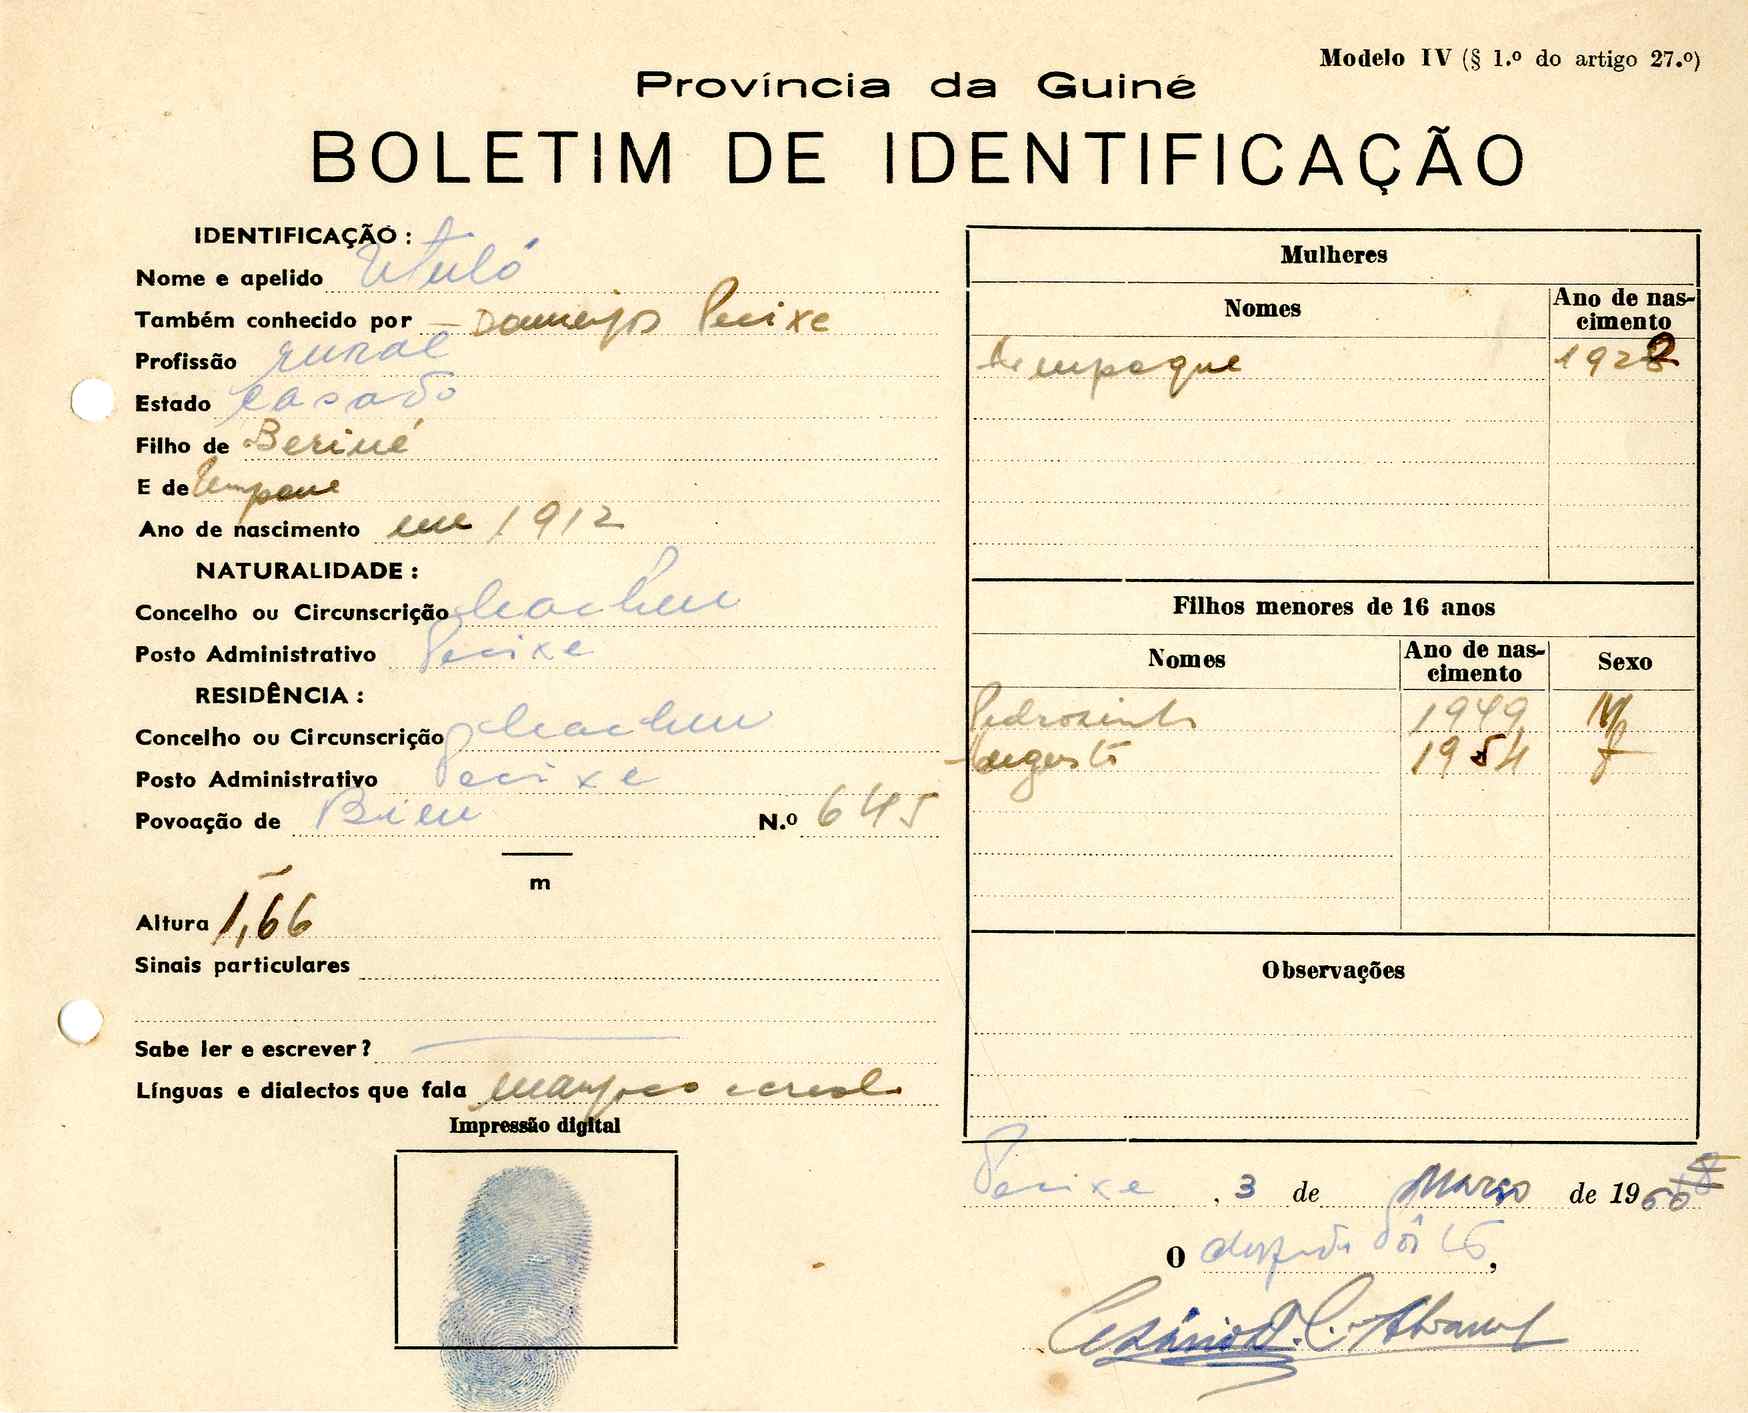 Modelo IV (§ 1.º do artigo 27.º)
Província da Guiné
BOLETIM DE IDENTIFICAÇÃO
IDENTIFICAÇÃO :
Nome e apelido Utuló
Também conhecido por — Domingos Pecixe
Profissão rural
Estado casado
Filho de Beriné
E de Umpane
Ano de nascimento em 1912
NATURALIDADE :
Concelho ou Circunscrição Cacheu
Posto Administrativo Pecixe
RESIDÊNCIA :
Concelho ou Circunscrição Cacheu
Posto Administrativo Pecixe
Povoação de Bieu N.º 645
m
Altura 1,66
Sinais particulares
Sabe ler e escrever ?
Línguas e dialectos que fala
Impressão digital
Mulheres
Nomes Ano de nas-
cimento
192
Filhos menores de 16 anos
Nomes Ano de nas-
cimento Sexo
Pedrosinho 1949 M
Augusta 1954 f
Observações
Pecixe, 3 de Março de 19
O